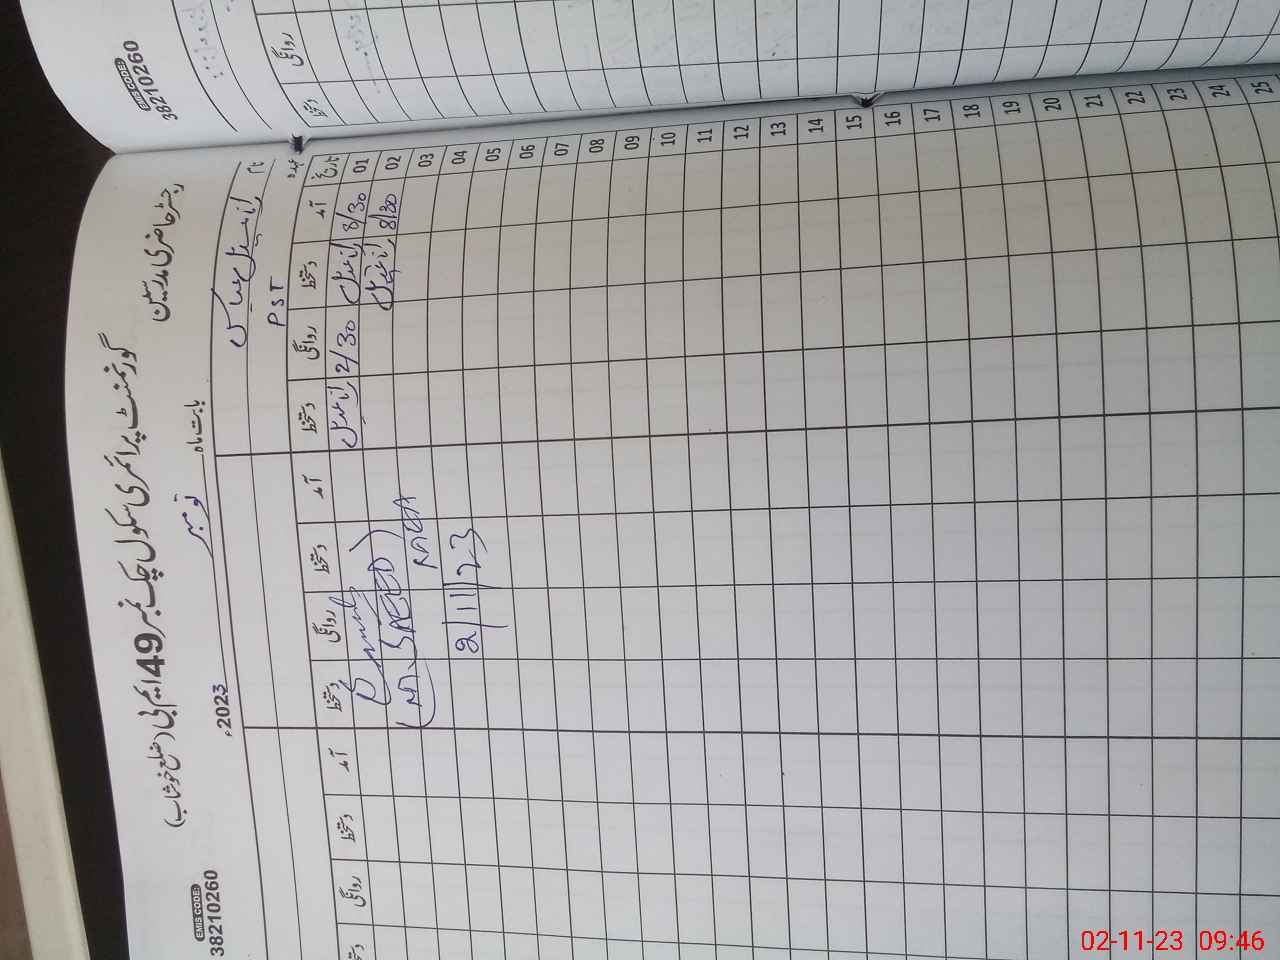 EMIS CODE:
38210260
روانگی
دستخط
رجسٹر حاضری مدرسین
گورنمنٹ پرائمری سکول چک نمبر 49 ایم بی (ضلع خوشاب)
EMIS CODE:
38210260
بابت ماہ نومبر 2023ء
نام
عہدہ PST
تاریخ آمد دستخط روانگی دستخط آمد دستخط روانگی دستخط آمد دستخط روانگی دستخط
01 8/30 2/30
02 8/30
(M. SAEED)
03
RAEA
04
2/11/23
05
06
07
08
09
10
11
12
13
14
15
16
17
18
19
20
21
22
23
24
25
02-11-23 09:46